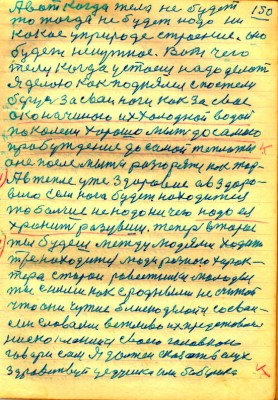 А вот когда тела не будет 150
то тогда не будет надо ни
какое у природе строение, оно
будет ненужное. Вот чего
телу когда устаеш надо делат
Я делаю как поднялся с постели
берус за сваи ноги как за свае
оконачиного их холодной водой
по колени хорошо мыт до самого
пробуждение до самой теплоты
оне после мытя разгорятся как жар
А в тепле уже здоровие а в здоро-
вию сам нога будет находится
то больше не надо ничего надо ея
хранит разувши. теперь второе
ты будеш между людями ходит
тре находит люди разного харак-
тера старои ровестники молоды
ты с ними как с родными не считай
что они чужие ближе делай и со сваи
ми словами вежливо их представляй
низко головку своею головкою
говари сам Я должен сказат бабушке
здравствуй дедушка или бабушка